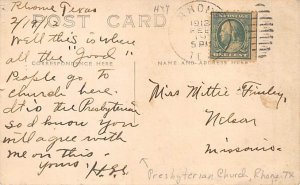 Rhome Texas
2/19/12
POST CARD
CORRESPONDENCE HERE
NAME AND ADDRESS HERE
Well this is where
all the "Good"
People go to
church here.
It is the Presbyterian
So I know you
will agree with
me on this.
Yours,
1912
FEB
5 PM
Miss Mittie Finley,
Missouri.
Presbyterian Church Rhome, TX